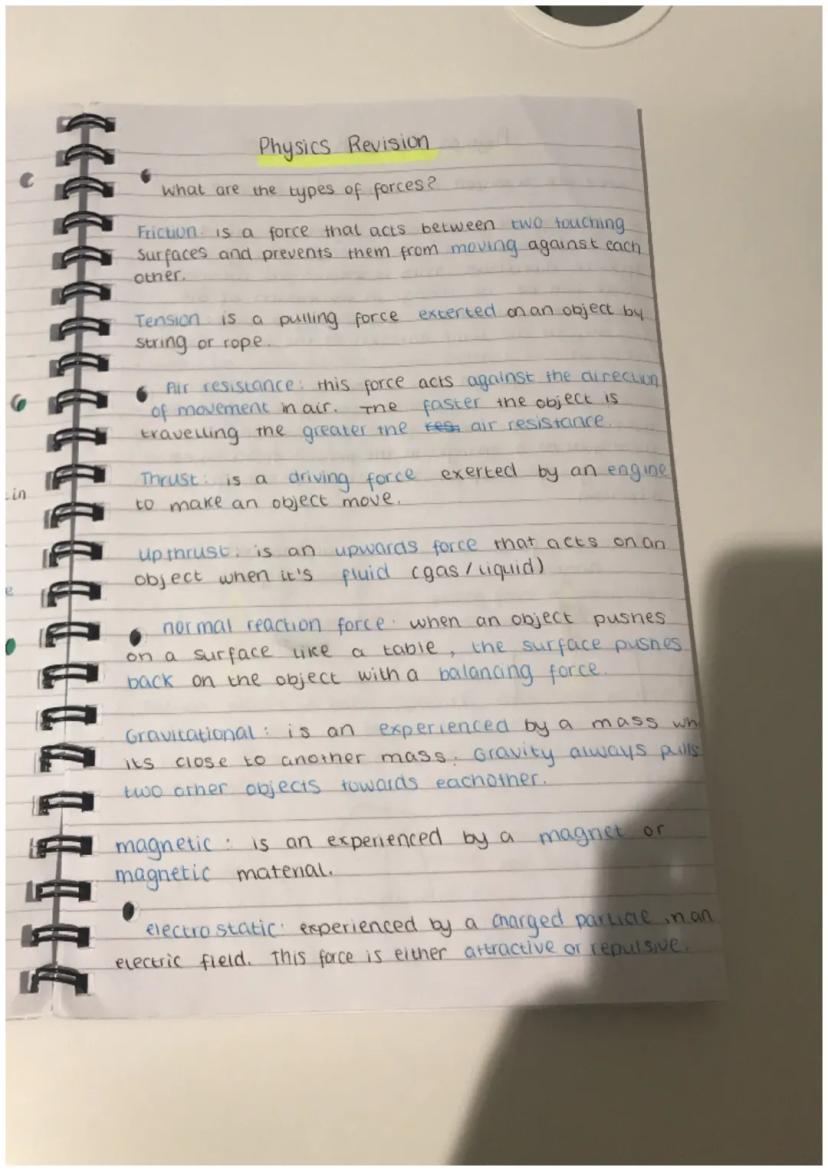 Physics Revision
What are the types of forces?
Friction: is a force that acts between two touching
surfaces and prevents them from moving against each
other.
Tension: is a pulling force exterted on an object by
string or rope.
Air resistance: this force acts against the direction
of movement in air. The faster the object is
travelling the greater the air resistance.
Thrust: is a driving force exerted by an engine
to make an object move.
upthrust: is an upwards force that acts on an
object when it's fluid (gas/liquid)
normal reaction force: when an object pushes
on a surface like a table, the surface pushes
back on the object with a balancing force.
Gravitational: is an experienced by a mass wh
its close to another mass. Gravity always pulls
two other objects towards eachother.
magnetic: is an experienced by a magnet or
magnetic material.
electrostatic: experienced by a charged particle in an
electric field. This force is either attractive or repulsive.
in
e